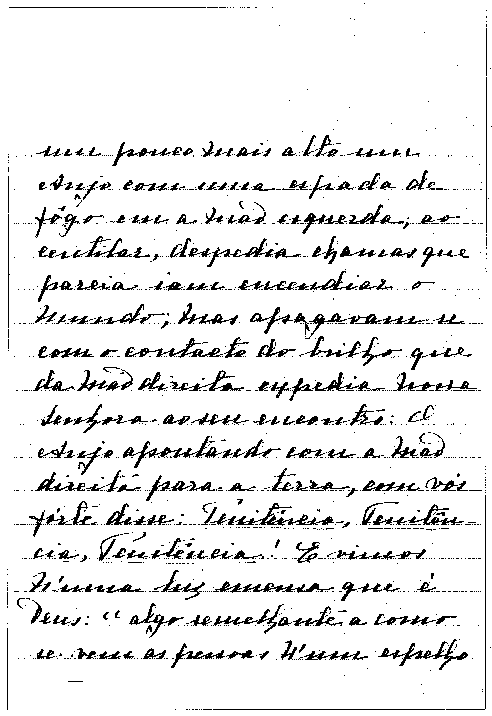 um pouco mais alto um
Anjo com uma espada de
fôgo em a mão esquerda; ao
centilar, despedia chamas que
parcia iam encendiar o
mundo; mas apagavam se
com o contacto do brilho que
da mão direita expedia Nossa
Senhora ao seu encontro: O
Anjo apontando com a mão
direita para a terra, com vós
fórte disse: Penitência, Penitên-
cia, Penitência! E vimos
n'uma luz emensa que é
Deus: "algo semelhante a como
se vem as pessoas n'um espelho